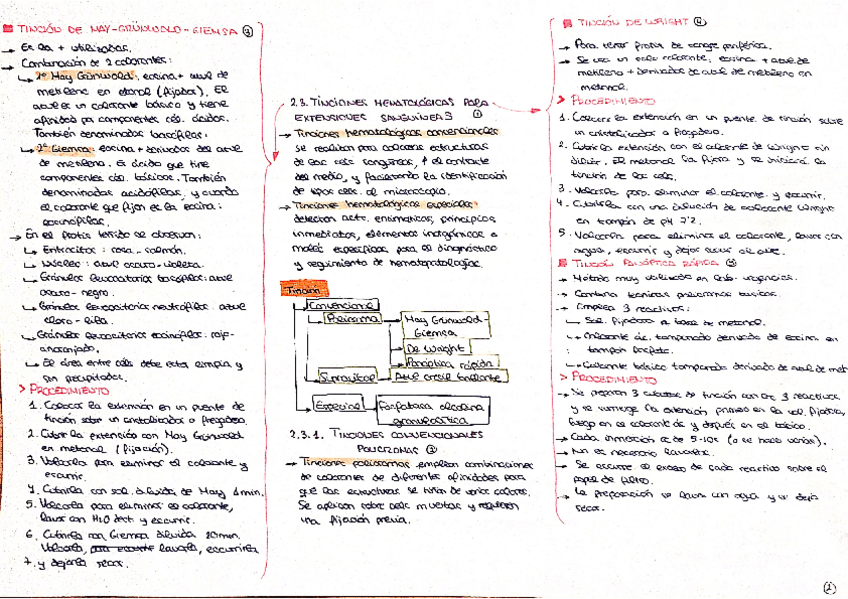 TINCIÓN DE MAY-GRÜNWALD-GIEMSA ③
→ Es la + utilizada.
→ Combinación de 2 colorantes:
↳ 1º May Grünwald: eosina + azul de
metileno en etanol (fijador). El
azul es un colorante básico y tiene
afinidad por componentes cel. ácidos.
También denominados basófilos.
↳ 2º Giemsa: eosina + derivados del azul
de metileno. Es ácido que tiñe
componentes cel. básicos. También
denominados acidófilos, y cuando
el colorante que fijan es la eosina:
eosinófilos.
→ En el frotis teñido se observan:
↳ Eritrocitos: rosa-salmón.
↳ Núcleo: azul oscuro-violeta.
↳ Gránulos leucocitarios basófilos: azul
oscuro-negro.
↳ Gránulos leucocitarios neutrófilos: azul
claro-lila.
↳ Gránulos leucocitarios eosinófilos: rojo-
anaranjado.
↳ El área entre céls debe estar limpia y
sin precipitados.
> PROCEDIMIENTO
1. Colocar la extensión en un puente de
tinción sobre un cristalizador o fregadero.
2. Cubrir la extensión con May Grünwald
en metanol (fijación).
3. Volcarla para eliminar el colorante y
escurrir.
4. Cubrirla con sol. diluida de May 1 min.
5. Volcarla para eliminar el colorante,
lavar con H2O dest y escurrir.
6. Cubrirla con Giemsa diluida 20min.
Volcarla, lavarla, escurrirla
7. y dejarla secar.
2.3. TINCIONES HEMATOLÓGICAS PARA
EXTENSIONES SANGUÍNEAS ①
→ Tinciones hematológicas convencionales
se realizan para colorear estructuras
de las céls sanguíneas, ↑ el contraste
del medio, y facilitando la identificación
de tipos cels. al microscopio.
→ Tinciones hematológicas especiales:
detectan actv. enzimáticas, principios
inmediatos, elementos inorgánicos o
moléc específicas para el diagnóstico
y seguimiento de hematopatologías.
Tinción
Convencional
Policroma
May Grünwald-
Giemsa
De Wright
Panóptica rápida
Supravital
Azul cresil brillante
Especial
Fosfatasa alcalina
granulocítica
2.3.1. TINCIONES CONVENCIONALES
POLICROMAS ②
→ Tinciones policromas: emplean combinaciones
de colorantes de diferentes afinidades para
que las estructuras se tiñan de varios colores.
Se aplican sobre cels muertas y requieren
una fijación previa.
TINCIÓN DE WRIGHT ④
→ Para teñir frotis de sangre periférica.
→ Se usa un solo colorante, eosina + azul de
metileno + derivados de azul de metileno en
metanol.
> PROCEDIMIENTO
1. Colocar la extensión en un puente de tinción sobre
un cristalizador o fregadero.
2. Cubrir la extensión con el colorante de Wright sin
diluir. El metanol la fijará y se iniciará la
tinción de las cels.
3. Volcarla para eliminar el colorante y escurrir.
4. Cubrirla con una dilución de colorante Wright
en tampón de pH 7'2.
5. Volcarla para eliminar el colorante, lavar con
agua, escurrir y dejar secar al aire.
TINCIÓN PANÓPTICA RÁPIDA ⑤
→ Método muy utilizado en lab. urgencias.
→ Combina técnicas policromas básicas.
→ Emplea 3 reactivos:
↳ Sol. fijadora a base de metanol.
↳ Colorante ác. tamponado derivado de eosina en
tampón fosfato.
↳ Colorante básico tamponado derivado de azul de met
> PROCEDIMIENTO
→ Se preparan 3 cubetas de tinción con los 3 reactivos
y se sumerge la extensión primero en la sol. fijadora,
luego en el colorante ác y después en el básico.
→ Cada inmersión es de 5-10s (o se hace varias).
→ No es necesario lavarla.
→ Se escurre el exceso de cada reactivo sobre el
papel de filtro.
→ La preparación se lava con agua y se deja
secar.
②